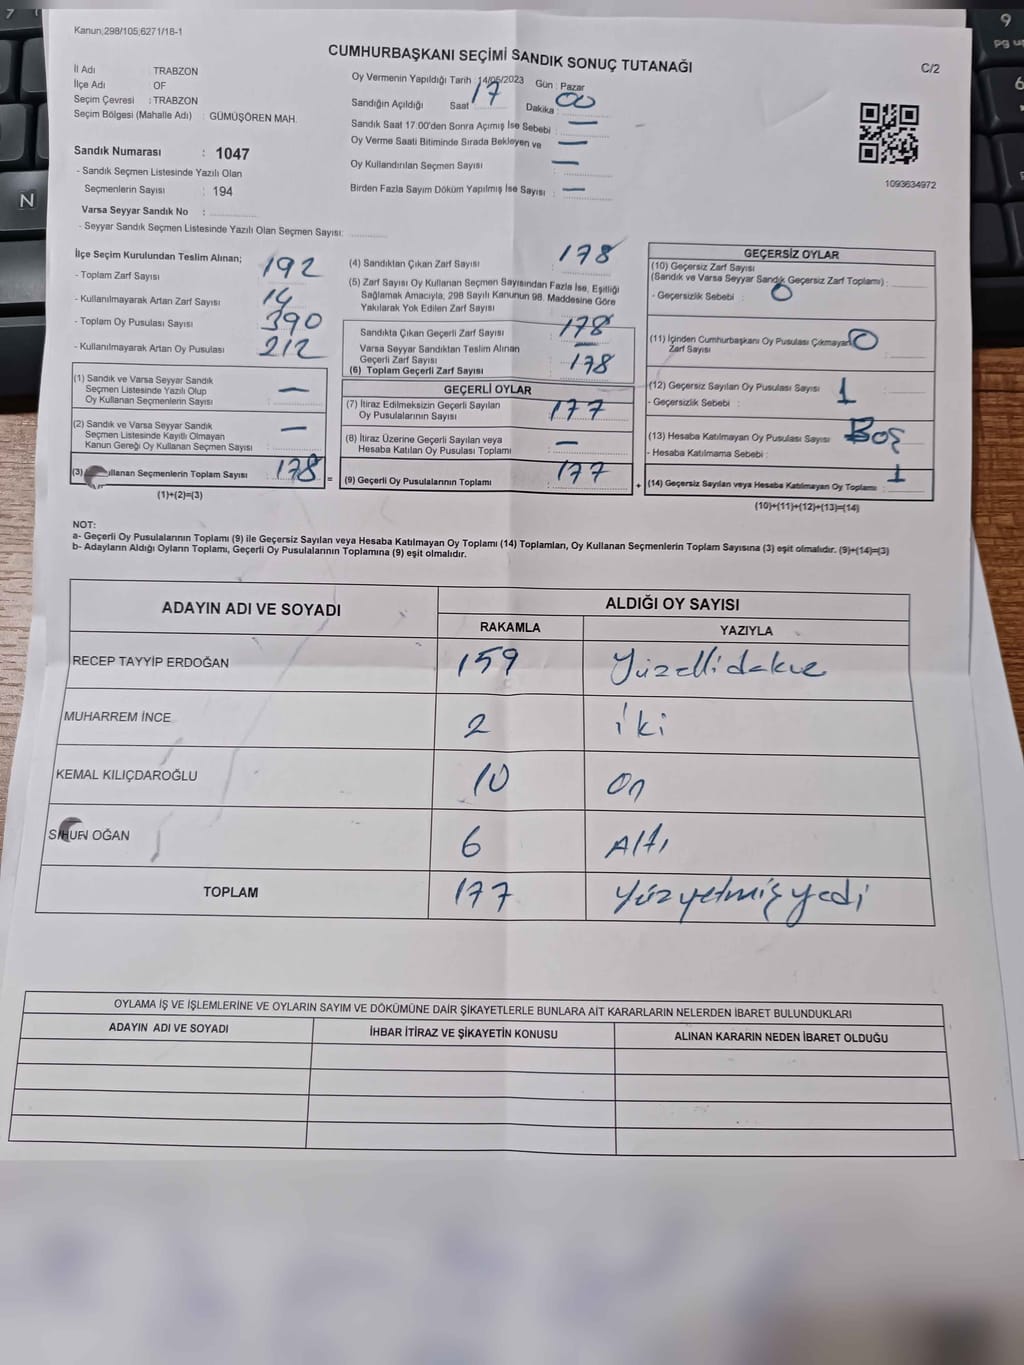 Kanun;298/105;6271/18-1
CUMHURBAŞKANI SEÇİMİ SANDIK SONUÇ TUTANAĞI
C/2
İl Adı : TRABZON
İlçe Adı : OF
Seçim Çevresi : TRABZON
Seçim Bölgesi (Mahalle Adı) : GÜMÜŞÖREN MAH.
Sandık Numarası : 1047
- Sandık Seçmen Listesinde Yazılı Olan
Seçmenlerin Sayısı : 194
Varsa Seyyar Sandık No :
- Seyyar Sandık Seçmen Listesinde Yazılı Olan Seçmen Sayısı:
Oy Vermenin Yapıldığı Tarih : 14/05/2023 Gün : Pazar
Sandığın Açıldığı Saat 17 Dakika : 00
Sandık Saat 17:00'den Sonra Açımış İse Sebebi : —
Oy Verme Saati Bitiminde Sırada Bekleyen ve —
Oy Kullandırılan Seçmen Sayısı : —
Birden Fazla Sayım Döküm Yapılmış İse Sayısı : —
1093634972
İlçe Seçim Kurulundan Teslim Alınan;
- Toplam Zarf Sayısı 192
- Kullanılmayarak Artan Zarf Sayısı : 14
- Toplam Oy Pusulası Sayısı : 390
- Kullanılmayarak Artan Oy Pusulası 212
(1) Sandık ve Varsa Seyyar Sandık
Seçmen Listesinde Yazılı Olup
Oy Kullanan Seçmenlerin Sayısı : —
(2) Sandık ve Varsa Seyyar Sandık
Seçmen Listesinde Kayıtlı Olmayan
Kanun Gereği Oy Kullanan Seçmen Sayısı : —
(3) ullanan Seçmenlerin Toplam Sayısı : 178 =
(1)+(2)=(3)
(4) Sandıktan Çıkan Zarf Sayısı : 178
(5) Zarf Sayısı Oy Kullanan Seçmen Sayısından Fazla İse, Eşitliği
Sağlamak Amacıyla, 298 Sayılı Kanunun 98. Maddesine Göre
Yakılarak Yok Edilen Zarf Sayısı :
Sandıkta Çıkan Geçerli Zarf Sayısı : 178
Varsa Seyyar Sandıktan Teslim Alınan
Geçerli Zarf Sayısı —
(6) Toplam Geçerli Zarf Sayısı : 178
GEÇERLİ OYLAR
(7) İtiraz Edilmeksizin Geçerli Sayılan
Oy Pusulalarının Sayısı : 177
(8) İtiraz Üzerine Geçerli Sayılan veya
Hesaba Katılan Oy Pusulası Toplamı : —
(9) Geçerli Oy Pusulalarının Toplamı : 177 +
GEÇERSİZ OYLAR
(10) Geçersiz Zarf Sayısı
(Sandık ve Varsa Seyyar Sandık Geçersiz Zarf Toplamı) :
- Geçersizlik Sebebi : 0
(11) İçinden Cumhurbaşkanı Oy Pusulası Çıkmayan 0
Zarf Sayısı :
(12) Geçersiz Sayılan Oy Pusulası Sayısı : 1
- Geçersizlik Sebebi :
(13) Hesaba Katılmayan Oy Pusulası Sayısı : Boş
- Hesaba Katılmama Sebebi :
(14) Geçersiz Sayılan veya Hesaba Katılmayan Oy Toplamı : 1
(10)+(11)+(12)+(13)=(14)
NOT:
a- Geçerli Oy Pusulalarının Toplamı (9) ile Geçersiz Sayılan veya Hesaba Katılmayan Oy Toplamı (14) Toplamları, Oy Kullanan Seçmenlerin Toplam Sayısına (3) eşit olmalıdır. (9)+(14)=(3)
b- Adayların Aldığı Oyların Toplamı, Geçerli Oy Pusulalarının Toplamına (9) eşit olmalıdır.
ADAYIN ADI VE SOYADI ALDIĞI OY SAYISI
RAKAMLA YAZIYLA
RECEP TAYYİP ERDOĞAN 159 Yüzellidokuz
MUHARREM İNCE 2 iki
KEMAL KILIÇDAROĞLU 10 On
OĞAN 6 Altı
TOPLAM 177 Yüzyetmişyedi
OYLAMA İŞ VE İŞLEMLERİNE VE OYLARIN SAYIM VE DÖKÜMÜNE DAİR ŞİKAYETLERLE BUNLARA AİT KARARLARIN NELERDEN İBARET BULUNDUKLARI
ADAYIN ADI VE SOYADI İHBAR İTİRAZ VE ŞİKAYETİN KONUSU ALINAN KARARIN NEDEN İBARET OLDUĞU
7
N
9
pg up
6